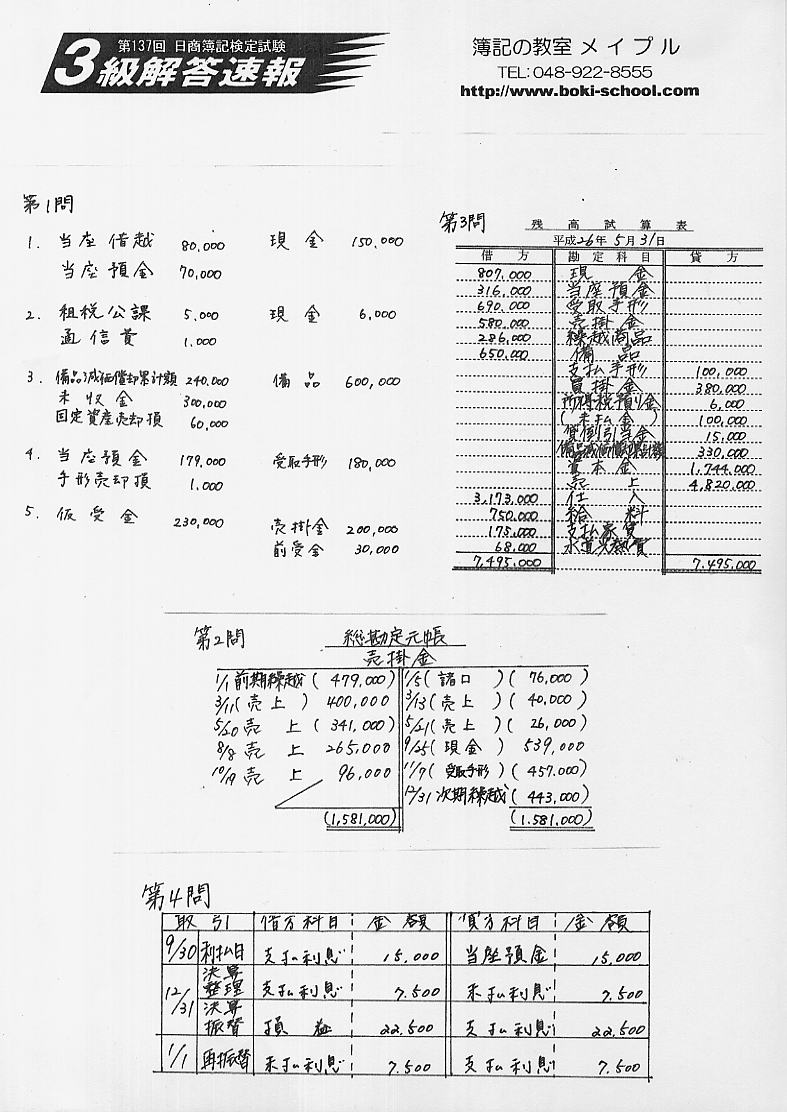 第137回 日商簿記検定試験
3級解答速報
簿記の教室 メイプル
TEL:048-922-8555
http://www.boki-school.com
第1問
1. 当座借越 80,000 現金 150,000
当座預金 70,000
2. 租税公課 5,000 現金 6,000
通信費 1,000
3. 備品減価償却累計額 240,000 備品 600,000
未収金 300,000
固定資産売却損 60,000
4. 当座預金 179,000 受取手形 180,000
手形売却損 1,000
5. 仮受金 230,000 売掛金 200,000
前受金 30,000
第3問 残高試算表
平成26年5月31日
借方 勘定科目 貸方
807,000 現金
316,000 当座預金
670,000 受取手形
580,000 売掛金
286,000 繰越商品
650,000 備品
支払手形 100,000
買掛金 380,000
所得税預り金 6,000
(未払金) 100,000
貸倒引当金 15,000
備品減価償却累計額 330,000
資本金 1,744,000
売上 4,820,000
3,173,000 仕入
750,000 給料
175,000 支払家賃
68,000 水道光熱費
7,495,000 7,495,000
第2問 総勘定元帳
売掛金
1/1 前期繰越 (479,000) 1/5 (諸口) (76,000)
3/11 (売上) 400,000 3/13 (売上) (40,000)
5/20 売上 (341,000) 5/21 (売上) (26,000)
8/8 売上 265,000 9/25 (現金) 539,000
10/19 売上 96,000 11/7 (受取手形) (457,000)
12/31 次期繰越 (443,000)
(1,581,000) (1,581,000)
第4問
取引 借方科目 金額 貸方科目 金額
9/30 利払日 支払利息 15,000 当座預金 15,000
12/31 決算整理 支払利息 7,500 未払利息 7,500
決算振替 損益 22,500 支払利息 22,500
1/1 再振替 未払利息 7,500 支払利息 7,500